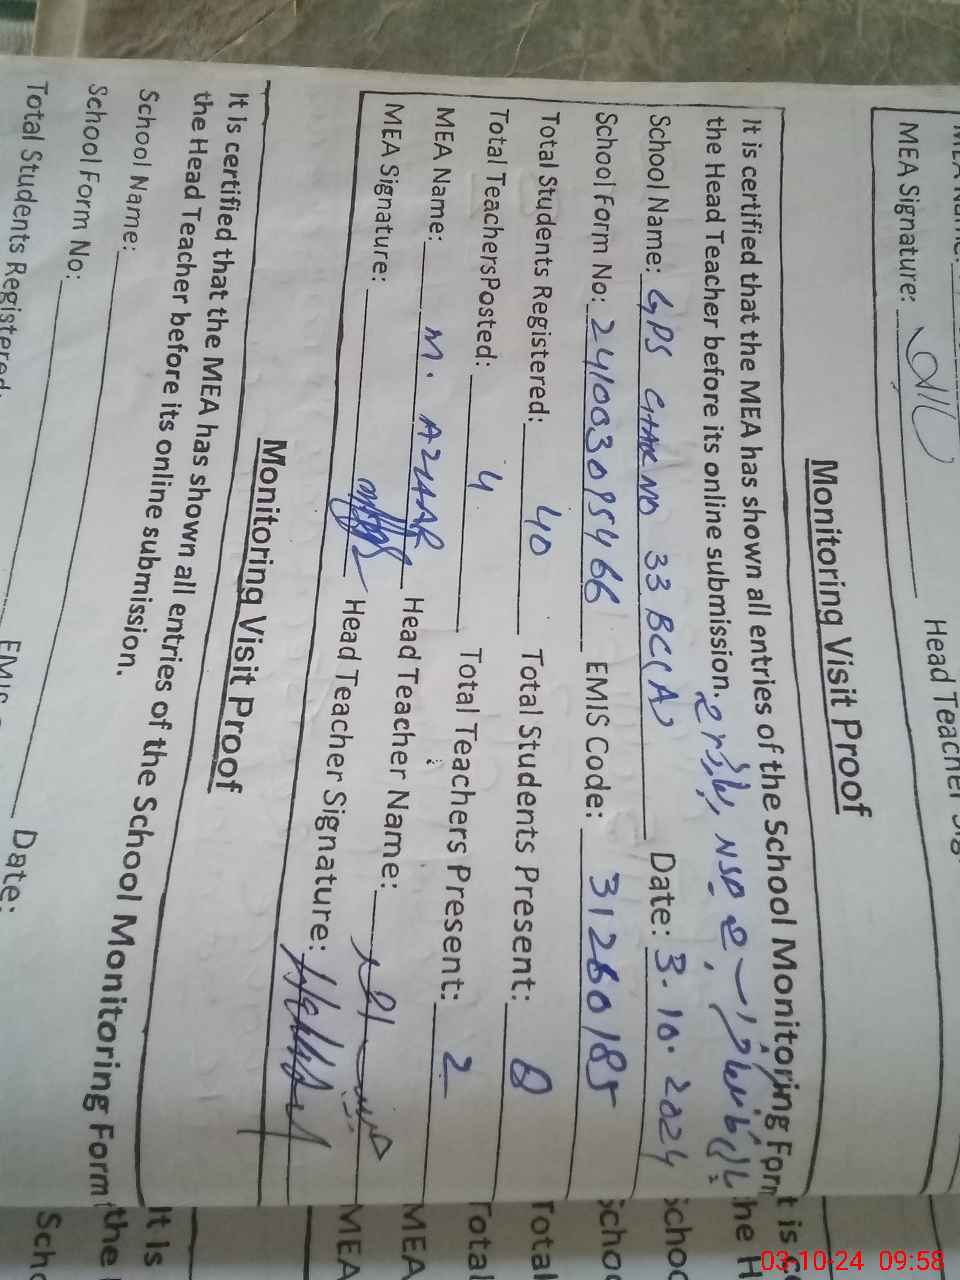 MEA Signature: Head Teacher Sig
Monitoring Visit Proof
It is certified that the MEA has shown all entries of the School Monitoring Form
the Head Teacher before its online submission. NSB
School Name: GPS CHAK NO 33 BC(A) Date: 3.10.2024
School Form No: 24100309 5466 EMIS Code: 31260185
Total Students Registered: 40 Total Students Present: 8
Total TeachersPosted: 4 Total Teachers Present: 2
MEA Name: M. AZHAR Head Teacher Name:
MEA Signature: Head Teacher Signature:
Monitoring Visit Proof
It is certified that the MEA has shown all entries of the School Monitoring Form
the Head Teacher before its online submission.
School Name: Date:
School Form No: EMIS
Total Students Registered:
t is
he H
Scho
Scho
Total
Total
MEA
MEA
It Is
the
Scho
03-10-24 09:58